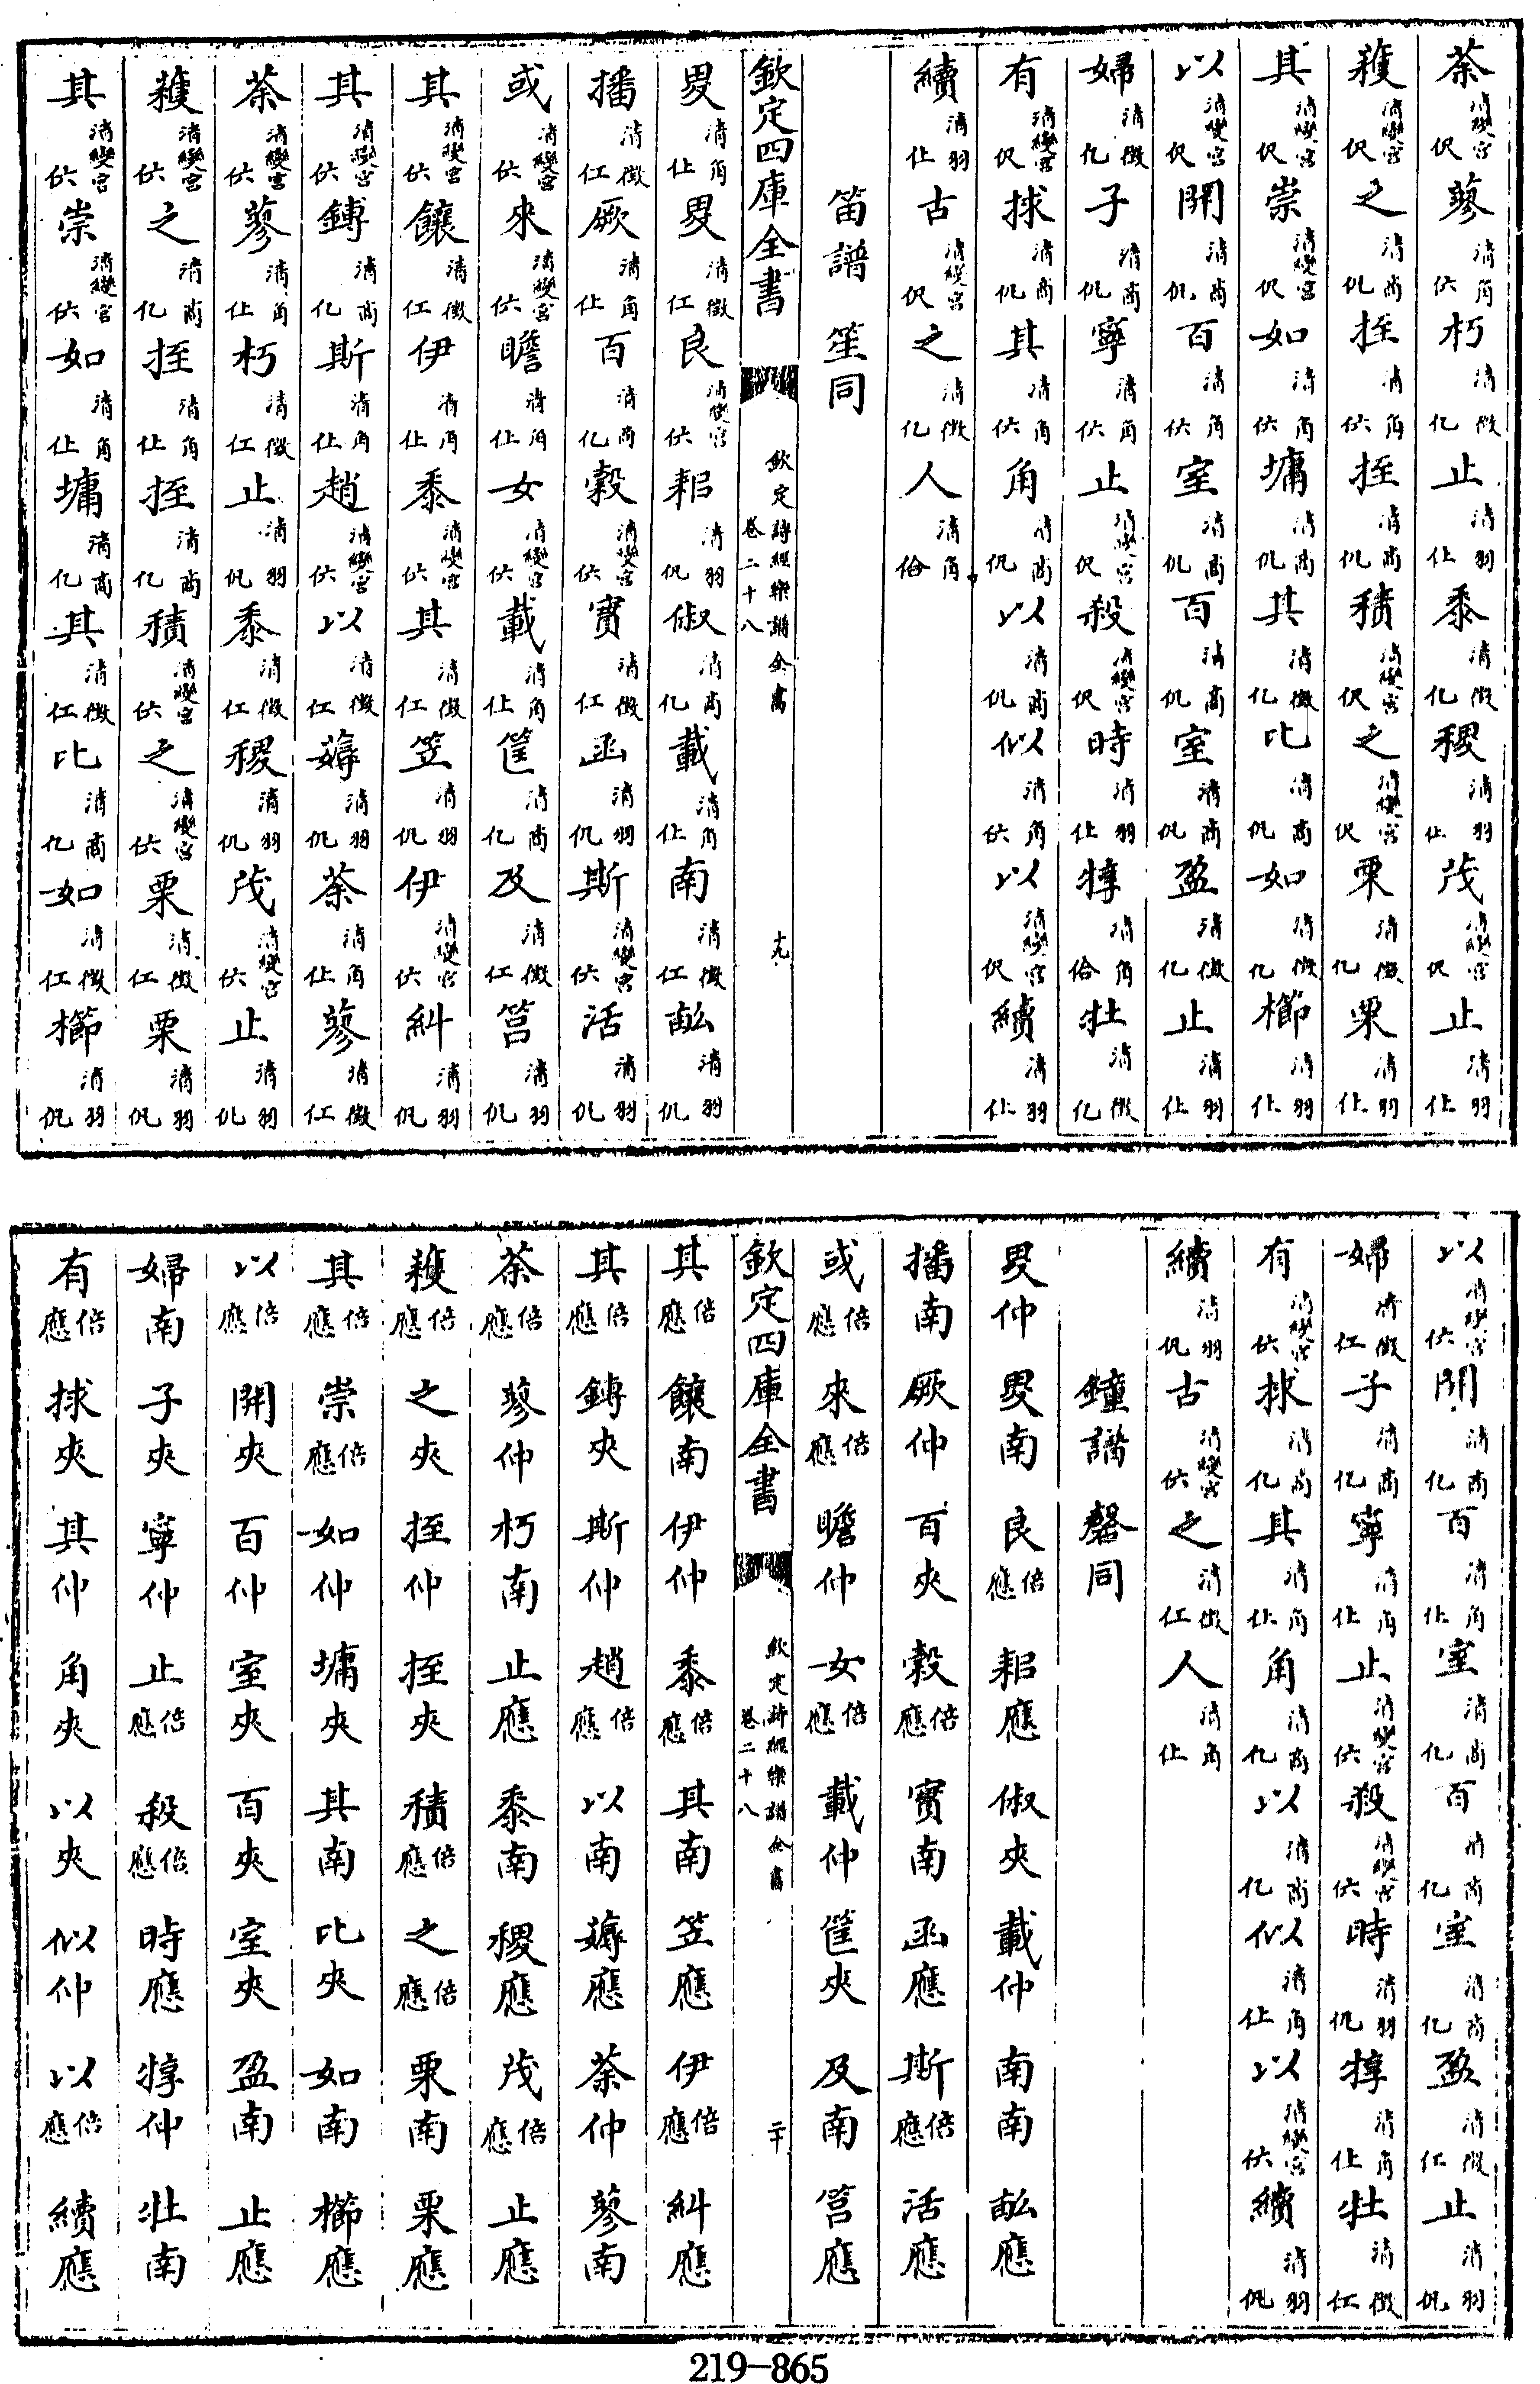 荼清變宮伬蓼清角⿰亻六朽清徵亿止清羽仩黍清徵亿稷清羽仩茂清變宮伬止清羽仩
穫清變宮伬之清商⿰亻凡挃清角⿰亻六挃清商⿰亻凡積清變宮伬之清變宮伬栗清徵亿栗清羽仩
其清變宮伬崇清變宮伬如清角⿰亻六墉清商⿰亻凡其清徵亿比清商⿰亻凡如清徵亿櫛清羽仩
以清變宮伬開清商⿰亻凡百清角⿰亻六室清商⿰亻凡百清商⿰亻凡室清商⿰亻凡盈清徵亿止清羽仩
婦清徵亿子清商⿰亻凡寧清角⿰亻六止清變宮伬殺清變宮伬時清羽仩犉清角佮牡清徵亿
有清變宮伬捄清商⿰亻凡其清角⿰亻六角清商⿰亻凡以清商⿰亻凡似清角⿰亻六以清變宮伬續清羽仩
續清羽仩古清變宮伬之清徵亿人清角佮
笛譜 笙同
欽定四庫全書 欽定詩經樂譜全書 卷二十八 十九
畟清角仩畟清徵仜良清變宮⿰亻六耜清羽⿰亻凡俶清商亿載清角仩南清徵仜畝清羽⿰亻凡
播清徵仜厥清角仩百清商亿穀清變宮⿰亻六實清徵仜函清羽⿰亻凡斯清變宮⿰亻六活清羽⿰亻凡
或清變宮⿰亻六來清變宮⿰亻六瞻清角仩女清變宮⿰亻六載清角仩筐清商亿及清徵仜筥清羽⿰亻凡
其清變宮⿰亻六饟清徵仜伊清角仩黍清變宮⿰亻六其清徵仜笠清羽⿰亻凡伊清變宮⿰亻六糾清羽⿰亻凡
其清變宮⿰亻六鎛清商亿斯清角仩趙清變宮⿰亻六以清徵仜薅清羽⿰亻凡荼清角仩蓼清徵仜
荼清變宮⿰亻六蓼清角仩朽清徵仜止清羽⿰亻凡黍清徵仜稷清羽⿰亻凡茂清變宮⿰亻六止清羽⿰亻凡
穫清變宮⿰亻六之清商亿挃清角仩挃清商亿積清變宮⿰亻六之清變宮⿰亻六栗清徵仜栗清羽⿰亻凡
其清變宮⿰亻六崇清變宮⿰亻六如清角仩墉清商亿其清徵仜比清商亿如清徵仜櫛清羽⿰亻凡
以清變宮⿰亻六開清商亿百清角仩室清商亿百清商亿室清商亿盈清徵仜止清羽⿰亻凡
婦清徵仜子清商亿寧清角仩止清變宮⿰亻六殺清變宮⿰亻六時清羽⿰亻凡犉清角仩牡清徵仜
有清變宮⿰亻六捄清商亿其清角仩角清商亿以清商亿似清角仩以清變宮⿰亻六續清羽⿰亻凡
續清羽⿰亻凡古清變宮⿰亻六之清徵仜人清角仩
鐘譜 磬同
畟仲畟南良倍應耜應俶夾載仲南南畝應
播南厥仲百夾穀倍應實南函應斯倍應活應
或倍應來倍應瞻仲女倍應載仲筐夾及南筥應
欽定四庫全書 欽定詩經樂譜全書 卷二十八 二十
其倍應饟南伊仲黍倍應其南笠應伊倍應糾應
其倍應鎛夾斯仲趙倍應以南薅應荼仲蓼南
荼倍應蓼仲朽南止應黍南稷應茂倍應止應
穫倍應之夾挃仲挃夾積倍應之倍應栗南栗應
其倍應崇倍應如仲墉夾其南比夾如南櫛應
以倍應開夾百仲室夾百夾室夾盈南止應
婦南子夾寧仲止倍應殺倍應時應犉仲牡南
有倍應捄夾其仲角夾以夾似仲以倍應續應
219-865